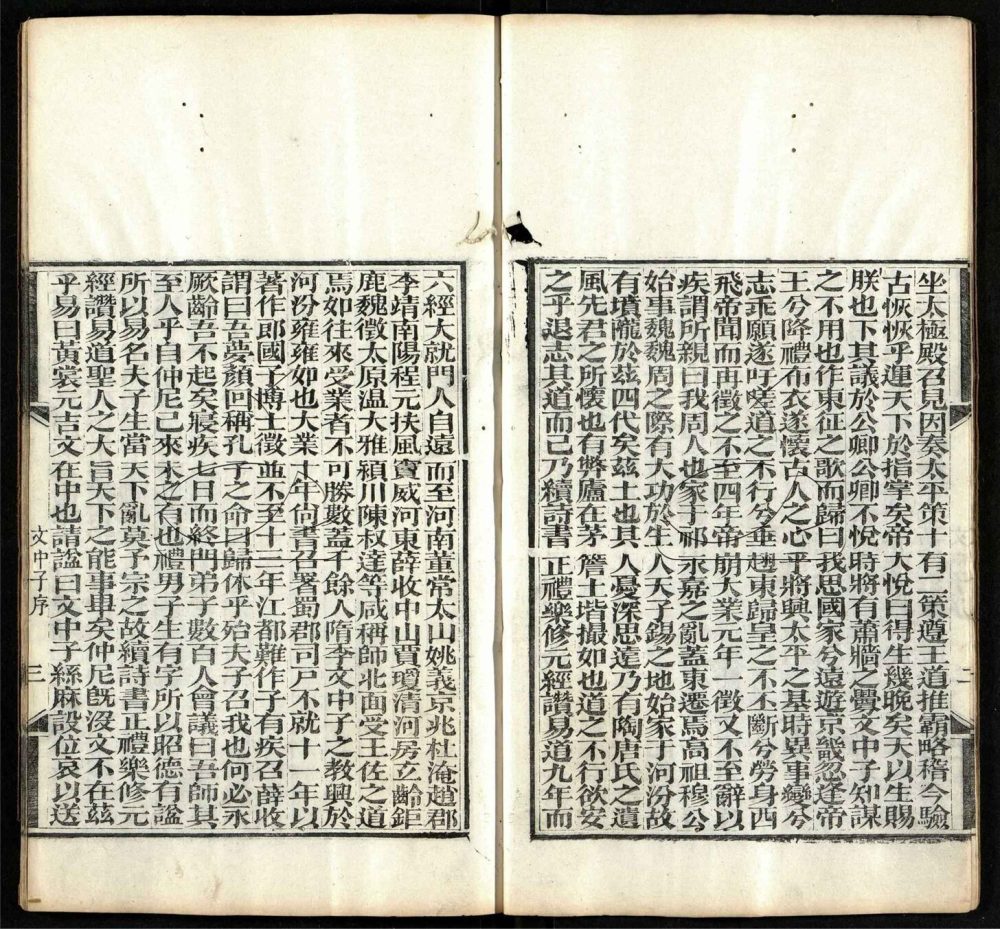 坐太極殿召見因奏太平策十有二策遵王道推霸略稽今驗
古恢恢乎運天下於指掌矣帝大悅曰得生幾晚矣天以生賜
朕也下其議於公卿公卿不悅時將有蕭牆之舋文中子知謀
之不用也作東征之歌而歸曰我思國家兮遠遊京畿忽逢帝
王兮降禮布衣遂懷古人之心乎將興太平之基時異事變兮
志乖願遂吁嗟道之不行兮垂趐東歸皇之不不斷兮勞身西
飛帝聞而再徵之不至四年帝崩大業元年一徵又不至辭以
疾謂所親曰我周人也家于祁永嘉之亂蓋東遷焉高祖穆公
始事魏魏周之際有大功於生人天子錫之地始家于河汾故
有墳隴於茲四代矣茲土也其人憂深思遠乃有陶唐氏之遺
風先君之所懷也有弊廬在茅簷土堦撮如也道之不行欲安
之乎退志其道而已乃續詩書正禮樂修元經讚易道九年而
六經大就門人自遠而至河南董常太山姚義京兆杜淹趙郡
李靖南陽程元扶風竇威河東薛收中山賈瓊清河房玄齡鉅
鹿魏徵太原温大雅潁川陳叔達等咸稱師北面受王佐之道
焉如往來受業者不可勝數蓋千餘人隋季文中子之教興於
河汾雍雍如也大業十年尙書召署蜀郡司戸不就十一年以
著作郎國子博士徵並不至十三年江都難作子有疾召薛收
謂曰吾夢顏回稱孔子之命曰歸休乎殆夫子召我也何必永
厥齡吾不起矣寢疾七日而終門弟子數百人會議曰吾師其
至人乎自仲尼已來未之有也禮男子生有字所以昭德有諡
所以易名夫子生當天下亂莫予宗之故續詩書正禮樂修元
經讚易道聖人之大旨天下之能事畢矣仲尼旣沒文不在茲
乎易曰黃裳元吉文在中也請諡曰文中子絲麻設位哀以送
文中子序
二
三